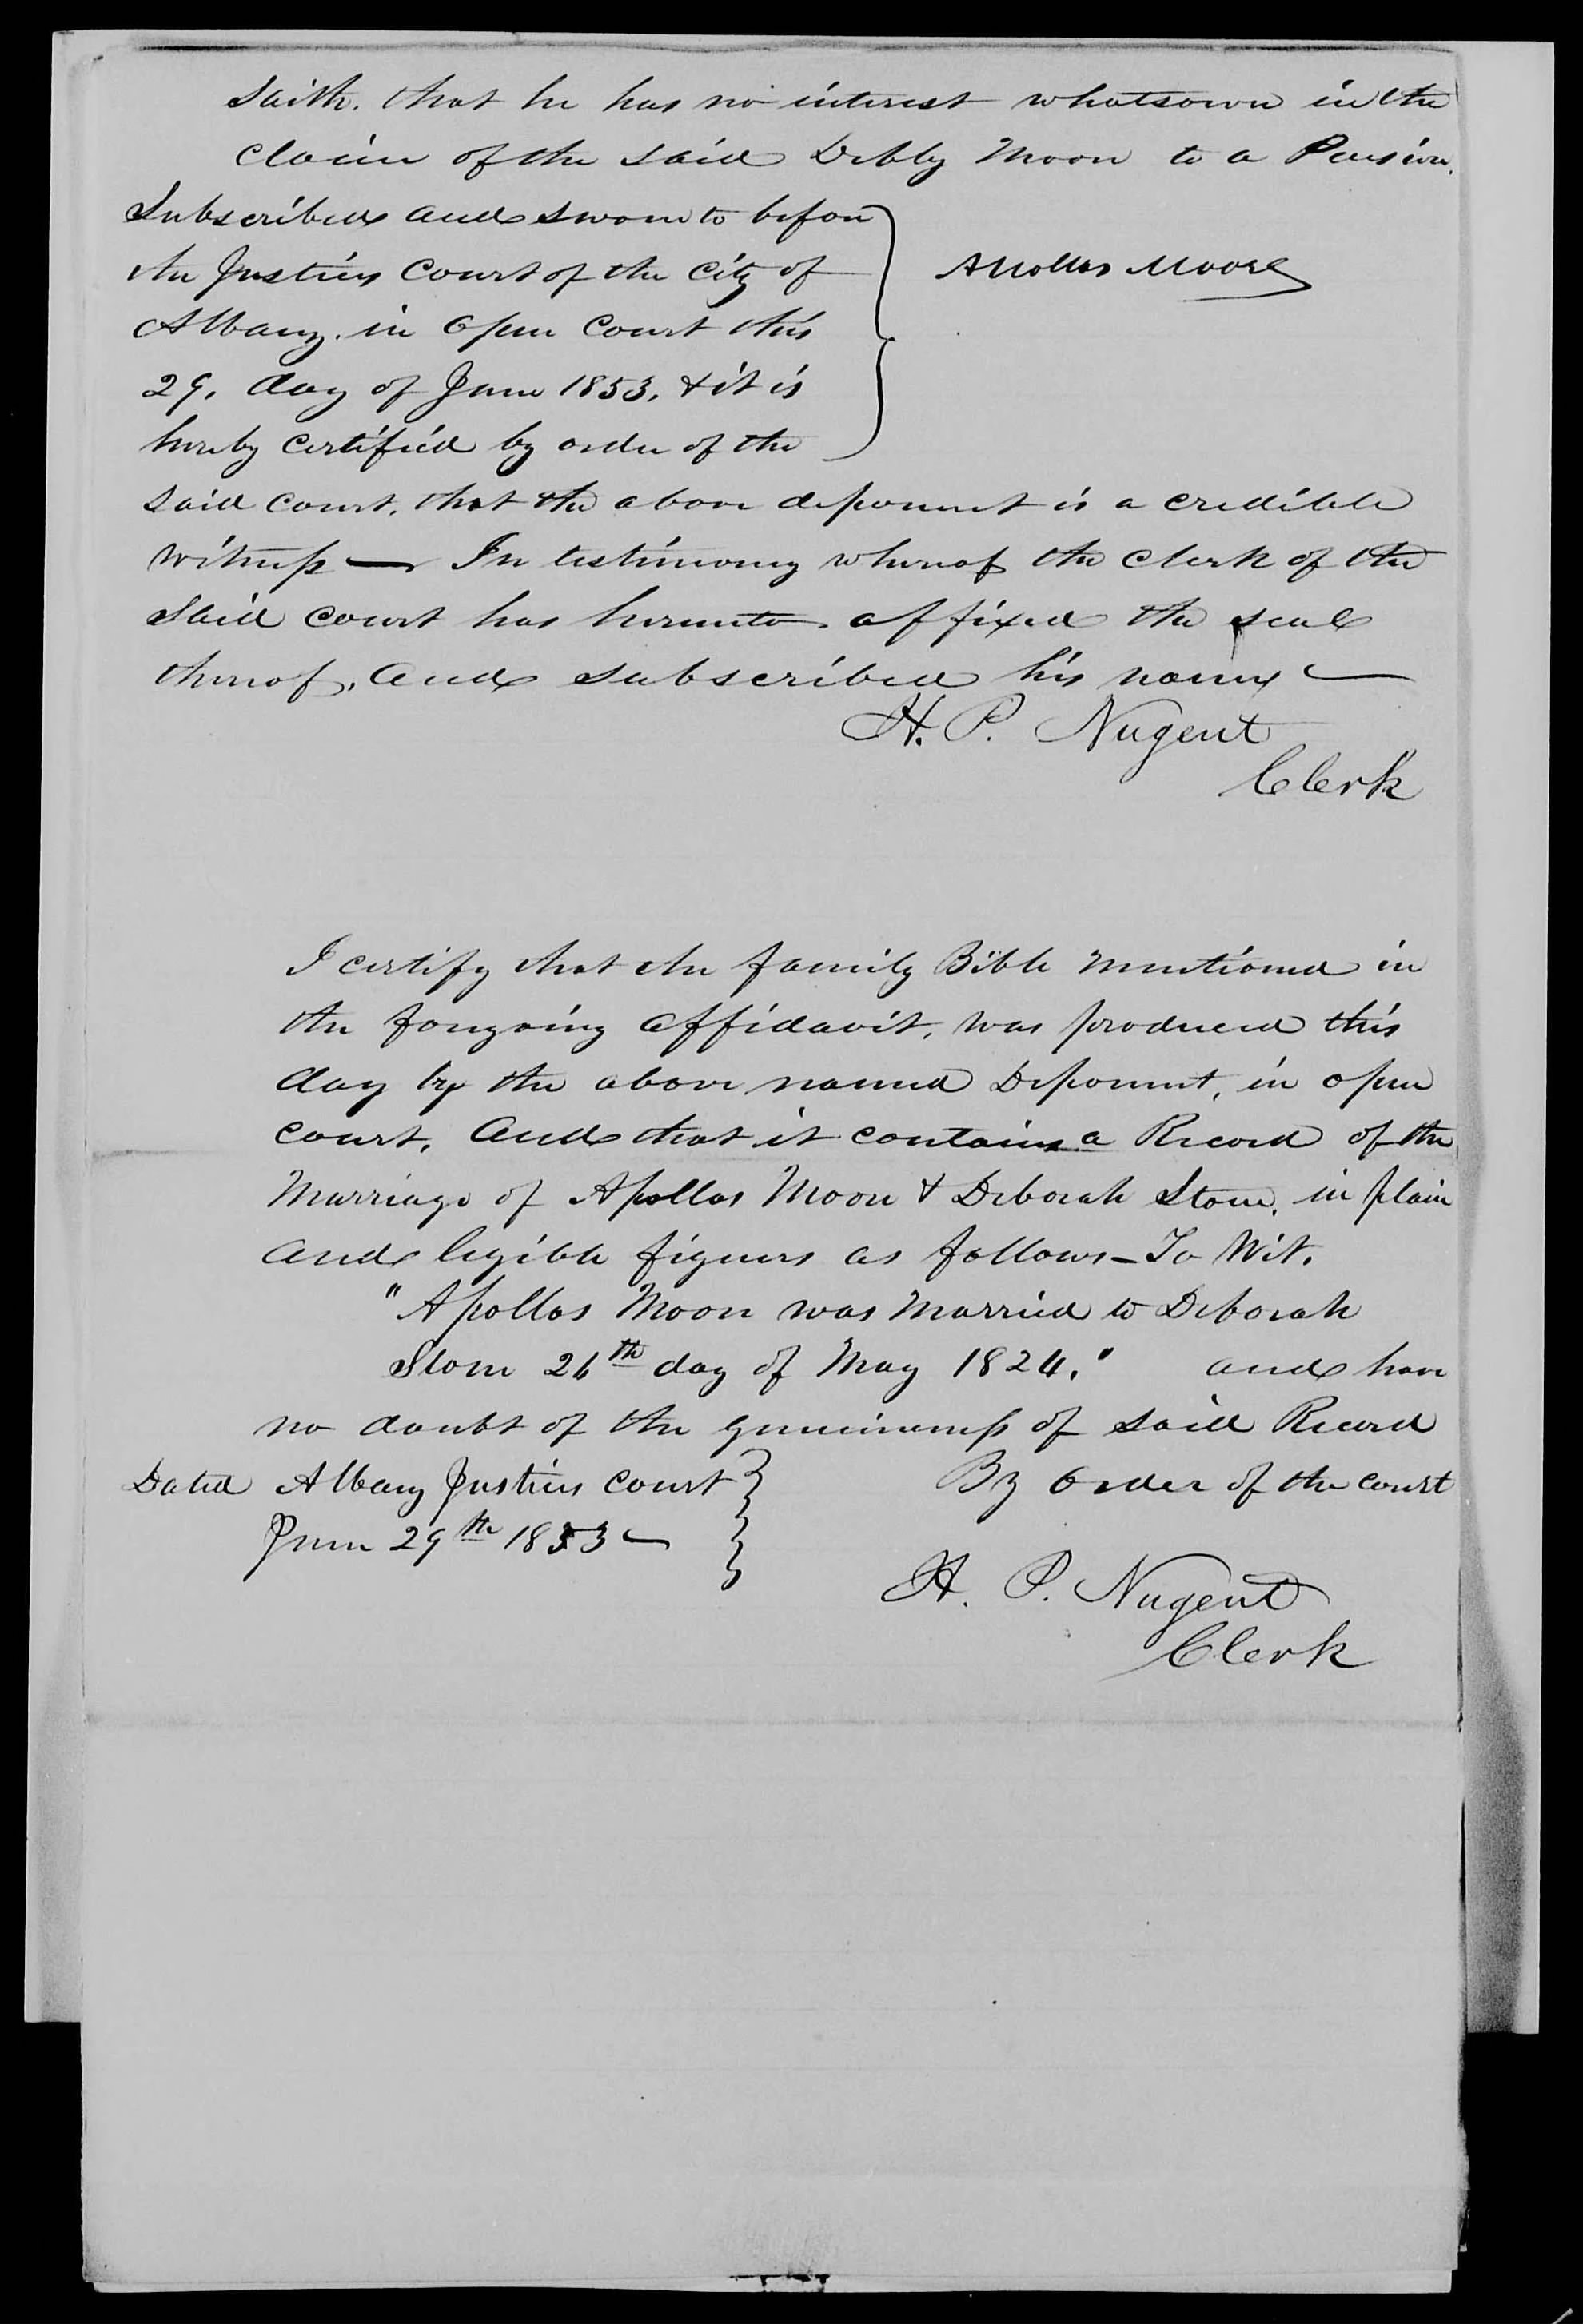 saith, that he has no interest whatsoever in the
claim of the said Debby Moore to a Pension.
Subscribed and sworn to before
the Justices Court of the City of
Albany, in open Court this
29, day of June 1853, & it is
hereby certified by order of the
Apollos Moore
said court, that the above deponent is a credible
witness — In testimony whereof the clerk of the
said court has hereunto affixed the seal
thereof, and subscribed his name —
H. P. Nugent
Clerk
I certify that the family Bible mentioned in
the foregoing affidavit, was produced this
day by the above named Deponent, in open
court, and that it contains a Record of the
Marriage of Apollos Moore & Deborah Stone, in plain
and legible figures as follows — To Wit.
"Apollos Moore was Married to Deborah
Stone 26th day of May 1824." and have
no doubt of the genuineness of said Record
Dated Albany Justices Court
June 29th 1853 —
By Order of the court
H. P. Nugent
Clerk